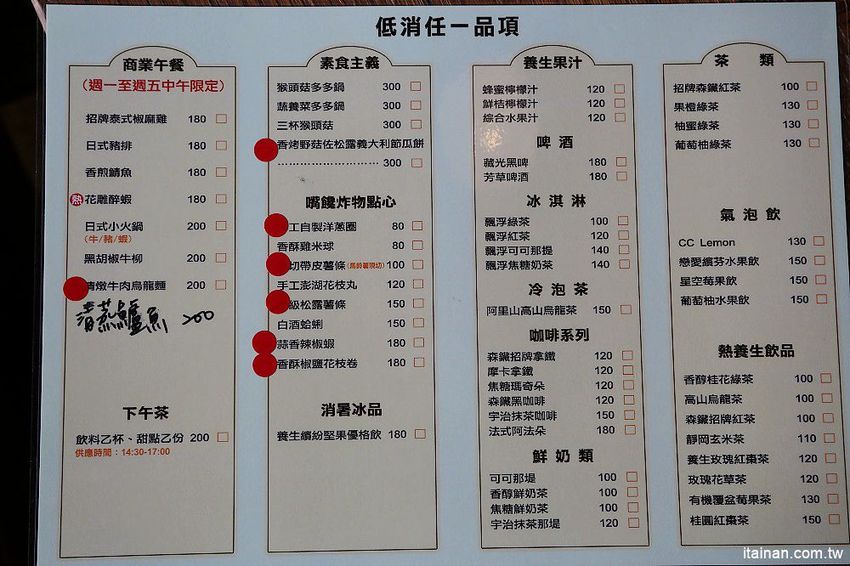 低消任一品項
商業午餐
(週一至週五中午限定)
招牌泰式椒麻雞 180
日式豬排 180
香煎鯖魚 180
熱 花雕醉蝦 180
日式小火鍋 200
(牛/豬/蝦)
黑胡椒牛柳 200
清燉牛肉烏龍麵 200
清蒸鱸魚 200
下午茶
飲料乙杯、甜點乙份 200
供應時間：14:30-17:00
素食主義
猴頭菇多多鍋 300
蔬養菜多多鍋 300
三杯猴頭菇 300
香烤野菇佐松露義大利節瓜餅
........................ 300
嘴饞炸物點心
工自製洋蔥圈 80
香酥雞米球 80
切帶皮薯條(馬鈴薯現切) 100
手工澎湖花枝丸 120
級松露薯條 150
白酒蛤蜊 150
蒜香辣椒蝦 180
香酥椒鹽花枝卷 180
消暑冰品
養生繽紛堅果優格飲 180
養生果汁
蜂蜜檸檬汁 120
鮮桔檸檬汁 120
綜合水果汁 120
啤酒
藏光黑啤 180
芳草啤酒 180
冰淇淋
飄浮綠茶 100
飄浮紅茶 120
飄浮可可那堤 140
飄浮焦糖奶茶 140
冷泡茶
阿里山高山烏龍茶 150
咖啡系列
森鐵招牌拿鐵 120
摩卡拿鐵 120
焦糖瑪奇朵 120
森鐵黑咖啡 120
宇治抹茶咖啡 150
法式阿法朵 180
鮮奶類
可可那堤 100
香醇鮮奶茶 100
焦糖鮮奶茶 100
宇治抹茶那堤 120
茶類
招牌森鐵紅茶 100
果橙綠茶 130
柚蜜綠茶 130
葡萄柚綠茶 130
氣泡飲
CC Lemon 130
戀愛繽芬水果飲 150
星空莓果飲 150
葡萄柚水果飲 150
熱養生飲品
香醇桂花綠茶 100
高山烏龍茶 100
森鐵招牌紅茶 100
靜岡玄米茶 110
養生玫瑰紅棗茶 120
玫瑰花草茶 120
有機覆盆莓果茶 130
桂圓紅棗茶 150
itainan.com.tw